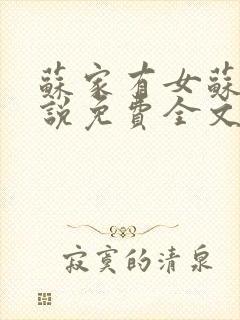 蘇家有女蘇
說免費全文
寂寞的清泉